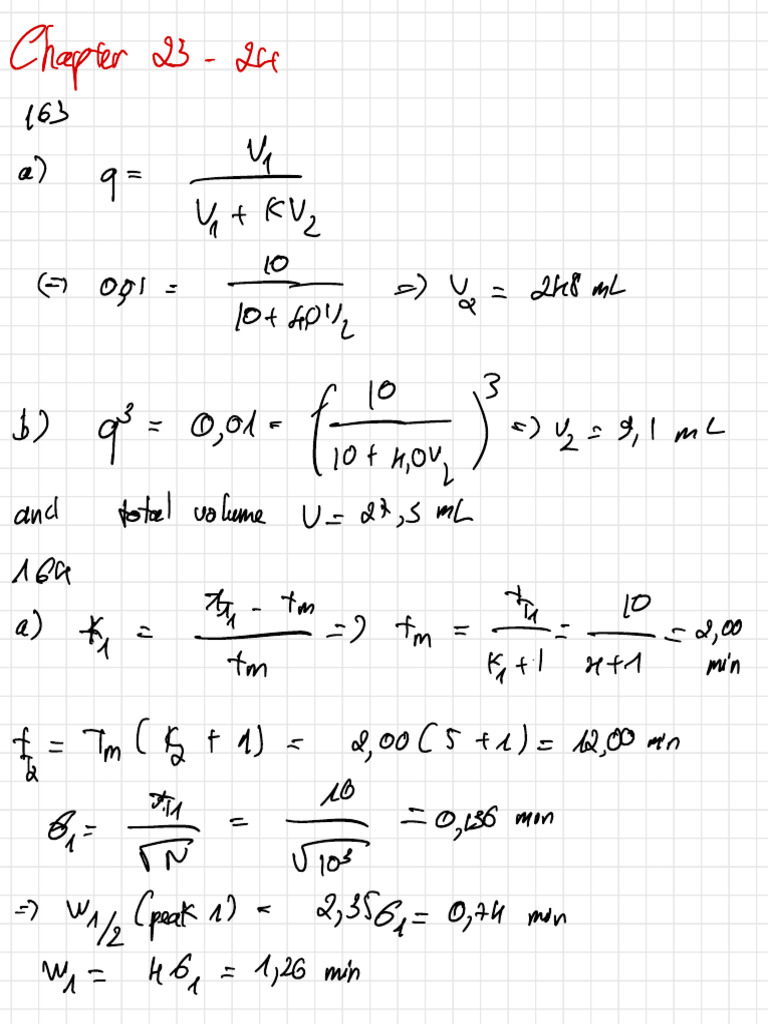 Chapter 23 - 24
163
a) q = V₁ / (V₁ + KV₂)
(=) 0,01 = 10 / (10 + 4,0V₂) =) V₂ = 248 mL
b) q³ = 0,01 = (10 / (10 + 4,0V₂))³ =) V₂ = 9,1 mL
and total volume V = 27,5 mL
164
a) K₁ = (tᵣ₁ - tm) / tm =) tm = tᵣ₁ / (K₁ + 1) = 10 / (4+1) = 2,00 min
tᵣ₂ = Tm (K₂ + 1) = 2,00 (5 + 1) = 12,00 min
σ₁ = tᵣ₁ / √N = 10 / √10³ = min
=) W₁/₂ (peak 1) = 2,35σ₁ = 0,74 min
W₁ = 4σ₁ = 1,26 min